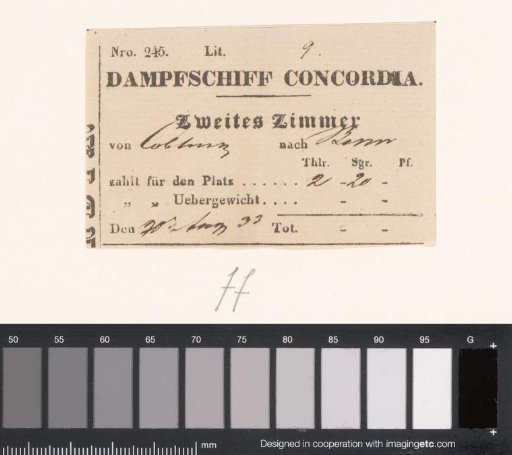 Nro. 245. Lit. 9.
DAMPFSCHIFF CONCORDIA.
Zweites Zimmer
von Coblenz nach Bonn
Thlr. Sgr. Pf.
zahlt für den Platz . . . . . . 2 - 20 -
„ „ Uebergewicht . . . . - -
Den 20 Aug 33 Tot. - -
50 55 60 65 70 75 80 85 90 95 G
mm
Designed in cooperation with imagingetc.com